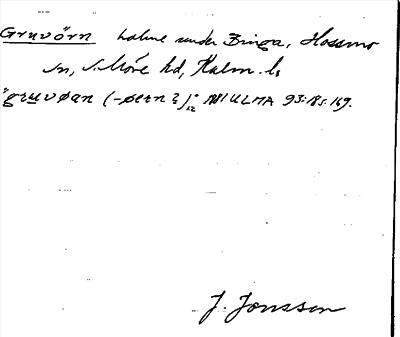 Gruvörn holme under Binga, Hossmo
sn, S. Möre hd, Kalm. l.
"gruvøan (-øern?)" ULMA 93:185:169.
J. Jonsson